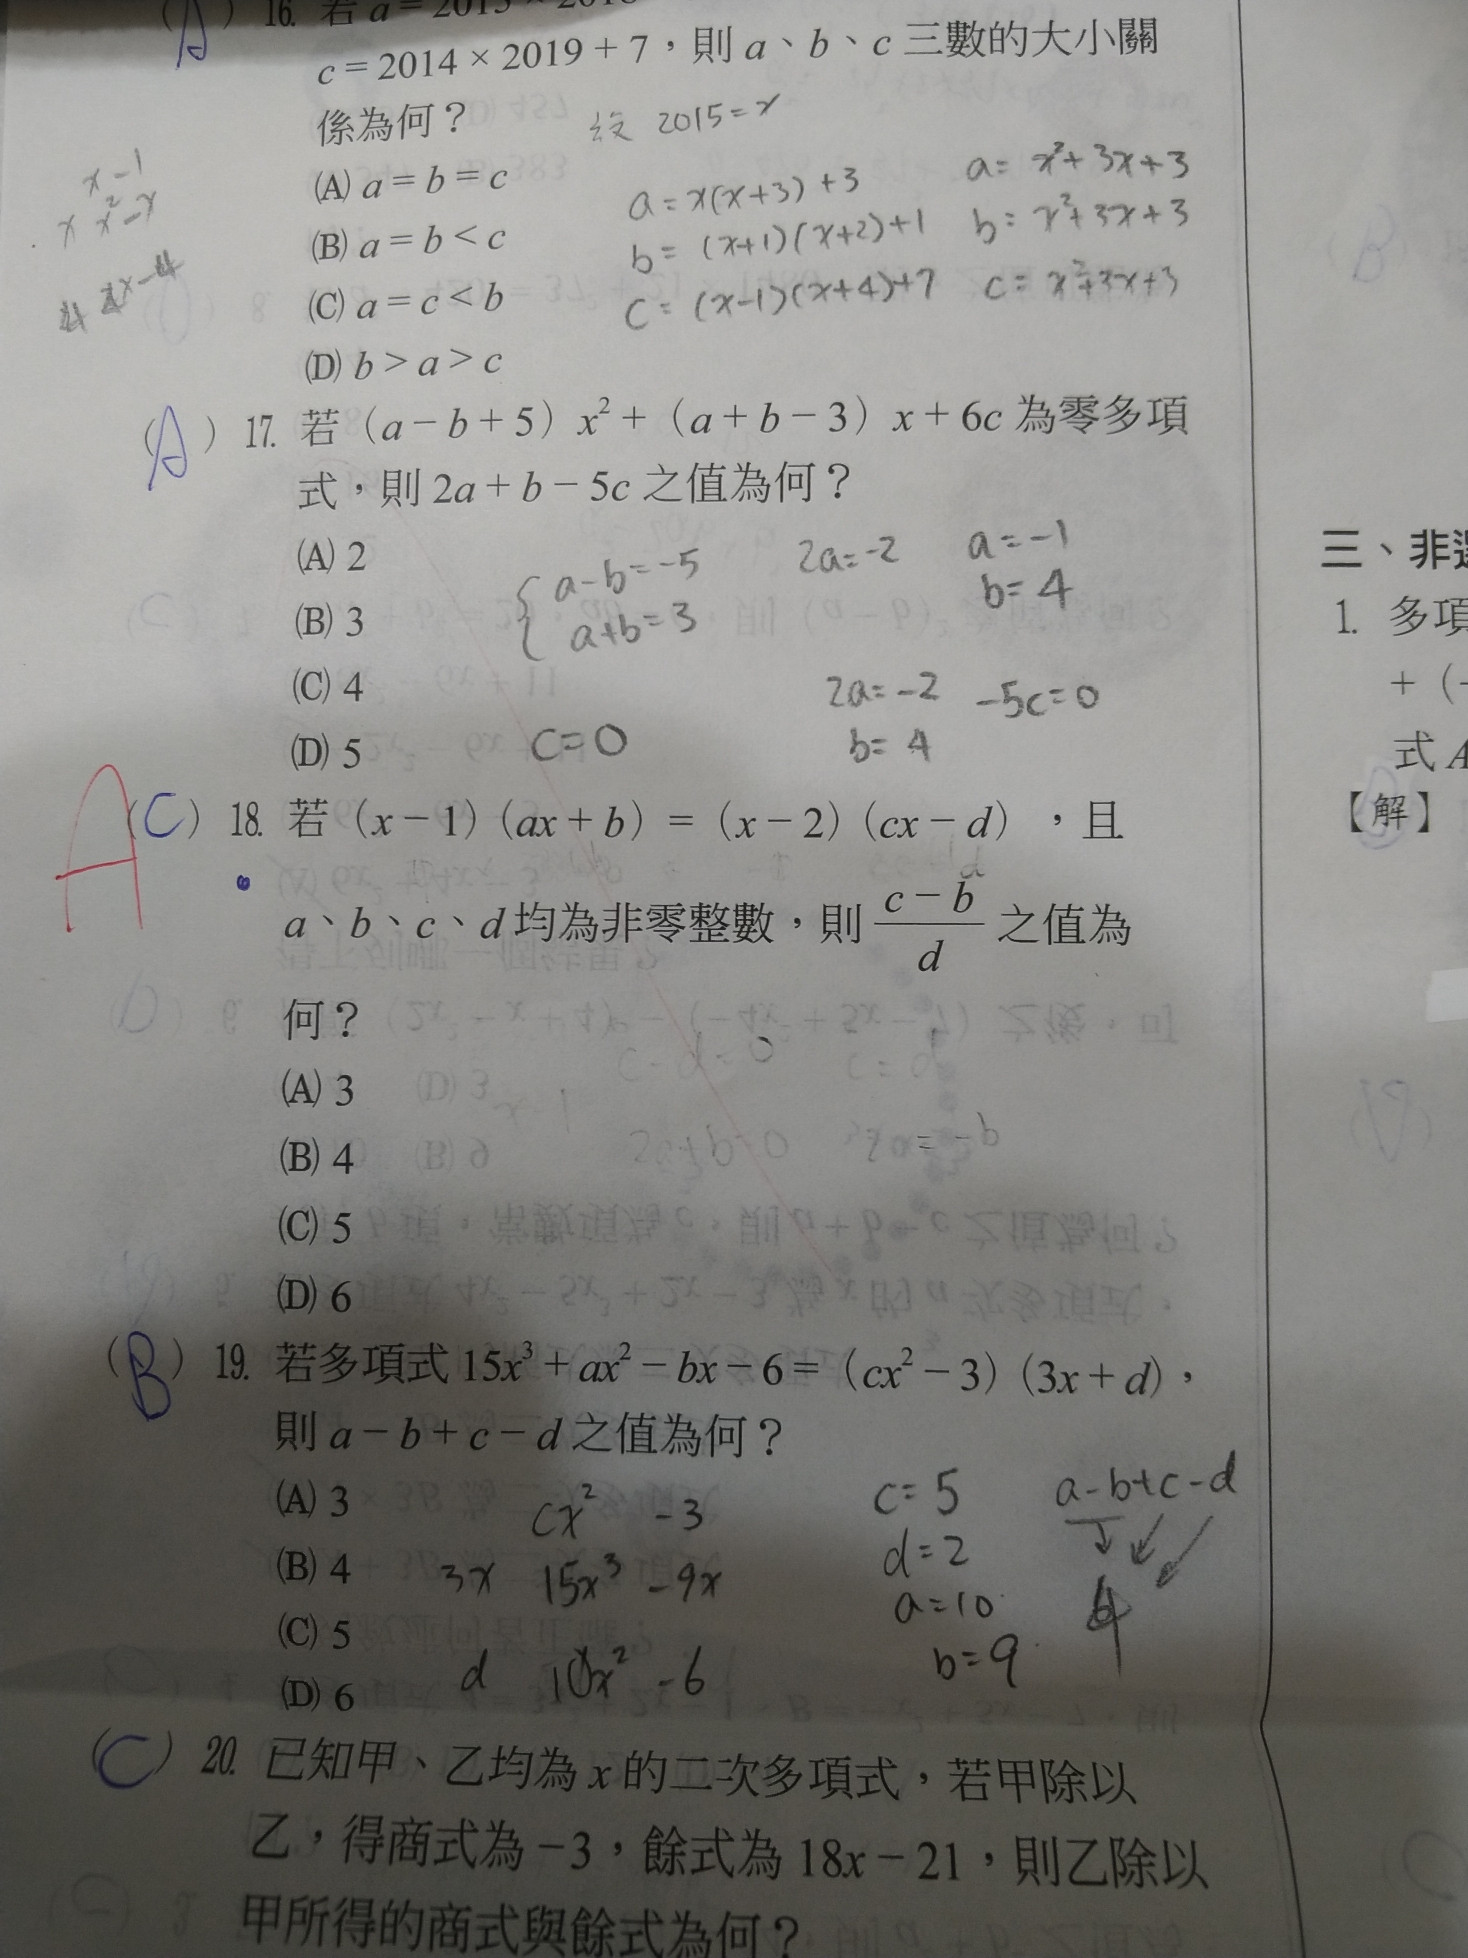 (A) 16. 若 a = 2015 × 2018
c = 2014 × 2019 + 7，則 a、b、c 三數的大小關
係為何？
設 2015=x
(A) a = b = c
(B) a = b < c
(C) a = c < b
(D) b > a > c
x-1
x x²-x
4 4x-4
a = x(x+3)+3
b = (x+1)(x+2)+1
c = (x-1)(x+4)+7
a = x²+3x+3
b = x²+3x+3
c = x²+3x+3
(A) 17. 若（a − b + 5）x² +（a + b − 3）x + 6c 為零多項
式，則 2a + b − 5c 之值為何？
(A) 2
(B) 3
(C) 4
(D) 5
{ a-b=-5
a+b=3
2a=-2
a=-1
b=4
c=0
2a=-2 -5c=0
b=4
A
(C) 18. 若（x − 1）（ax + b）=（x − 2）（cx − d），且
a、b、c、d 均為非零整數，則 (c − b)/d 之值為
何？
(A) 3
(B) 4
(C) 5
(D) 6
(B) 19. 若多項式 15x³ + ax² − bx − 6 =（cx² − 3）（3x + d），
則 a − b + c − d 之值為何？
(A) 3
(B) 4
(C) 5
(D) 6
cx² -3
3x 15x³ -9x
d 10x² -6
c=5
d=2
a=10
b=9
a-b+c-d
4
(C) 20. 已知甲、乙均為 x 的二次多項式，若甲除以
乙，得商式為 −3，餘式為 18x − 21，則乙除以
甲所得的商式與餘式為何？
三、非
1. 多項
+ (-
式 A
【解】